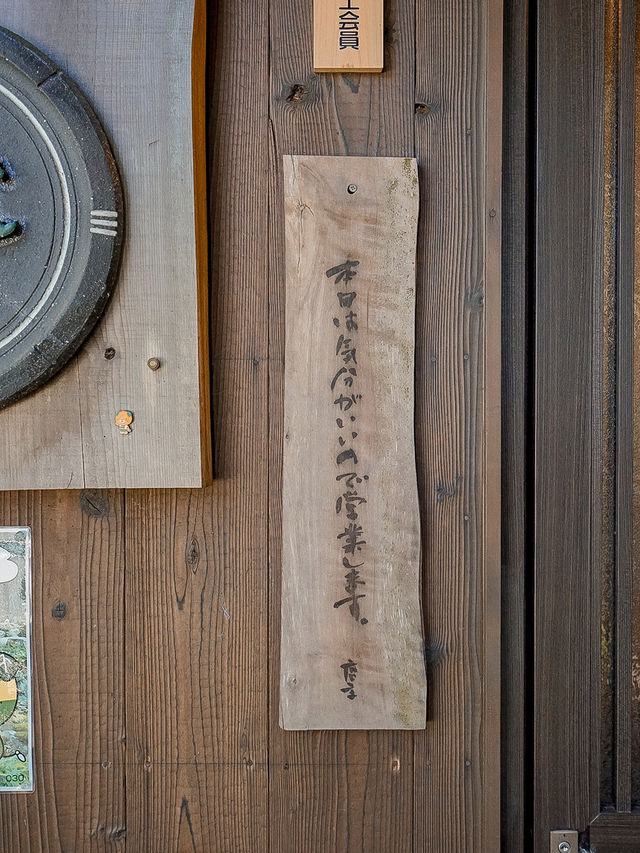 会員
本日は気分がいいので営業します。
店主
030